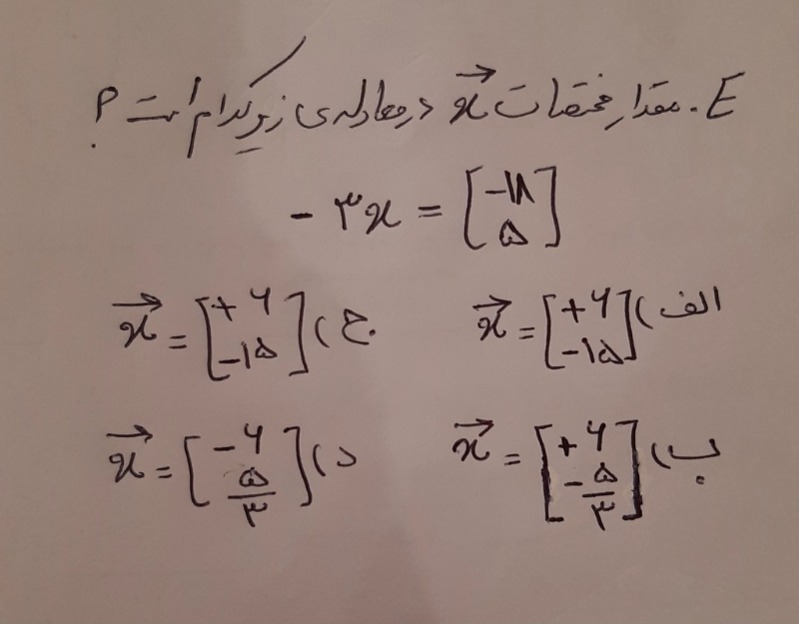 E. مقدار مختصات x⃗ در معادله‌ی زیر کدام است ؟
- ۳x = [-۱۸ ۵]
الف) x⃗ = [+۶ -۱۵] ج) x⃗ = [+۶ -۱۵]
ب) x⃗ = [+۶ -۵/۳] د) x⃗ = [-۶ ۵/۳]